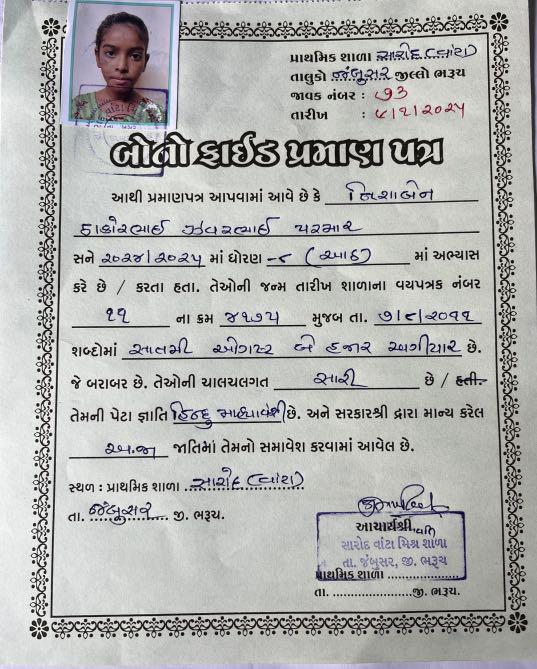 પ્રાથમિક શાળા સારોદ (વાંટા)
તાલુકો જંબુસર જીલ્લો ભરૂચ
જાવક નંબર : ૭૩
તારીખ : ૯/૧/૨૦૨૫
બોનોફાઈડ પ્રમાણ પત્ર
આથી પ્રમાણપત્ર આપવામાં આવે છે કે નિશાબેન
ઠાકોરભાઈ ઝવરભાઈ પરમાર
સને ૨૦૨૪/૨૦૨૫ માં ધોરણ - ૮ (આઠ) માં અભ્યાસ
કરે છે / કરતા હતા. તેઓની જન્મ તારીખ શાળાના વયપત્રક નંબર
૧૧ ના ક્રમ ૪૧૭૫ મુજબ તા. ૭/૮/૨૦૧૧
શબ્દોમાં સાતમી ઓગષ્ટ બે હજાર અગીયાર છે.
જે બરાબર છે. તેઓની ચાલચલગત સારી છે / હતી.
તેમની પેટા જ્ઞાતિ હિન્દુ માહ્યાવંશી છે. અને સરકારશ્રી દ્રારા માન્ય કરેલ
અ.જા જાતિમાં તેમનો સમાવેશ કરવામાં આવેલ છે.
સ્થળ : પ્રાથમિક શાળા સારોદ (વાંટા)
તા. જંબુસર જી. ભરૂચ.
આચાર્યશ્રી
સારોદ વાંટા મિશ્ર શાળા
તા. જંબુસર, જી. ભરૂચ
પ્રાથમિક શાળા ..................
તા. ..................જી. ભરૂચ.